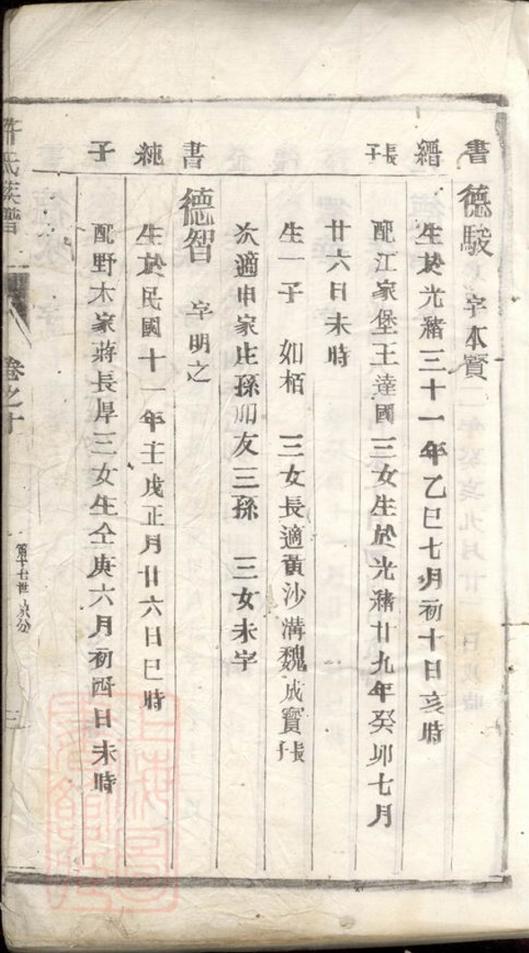 書縉長子
德駿 字本寶
生於光緒三十一年乙巳七月初十日亥時
配江家堡王達國三女生於光緒廿九年癸卯七月
廿六日未時
生一子 如栢 三女長適黃沙溝魏成寶長子
次適申家庄孫朋友三孫 三女未字
書純子
德智 字明之
生於民國十一年壬戌正月廿六日巳時
配野木家蔣長厚三女生仝庚六月初四日未時
許氏族譜
卷之十
第十七世 次分
三